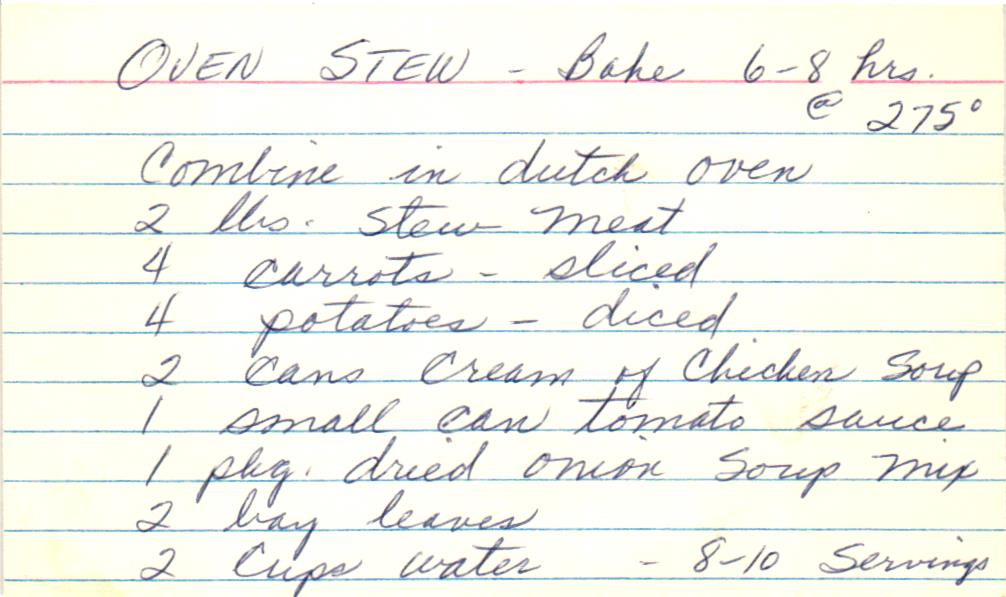 OVEN STEW - Bake 6-8 hrs.
@ 275°
Combine in dutch oven
2 lbs. Stew Meat
4 carrots - sliced
4 potatoes - diced
2 cans Cream of Chicken Soup
1 small can tomato sauce
1 pkg. dried onion Soup Mix
2 bay leaves
2 Cups water - 8-10 Servings